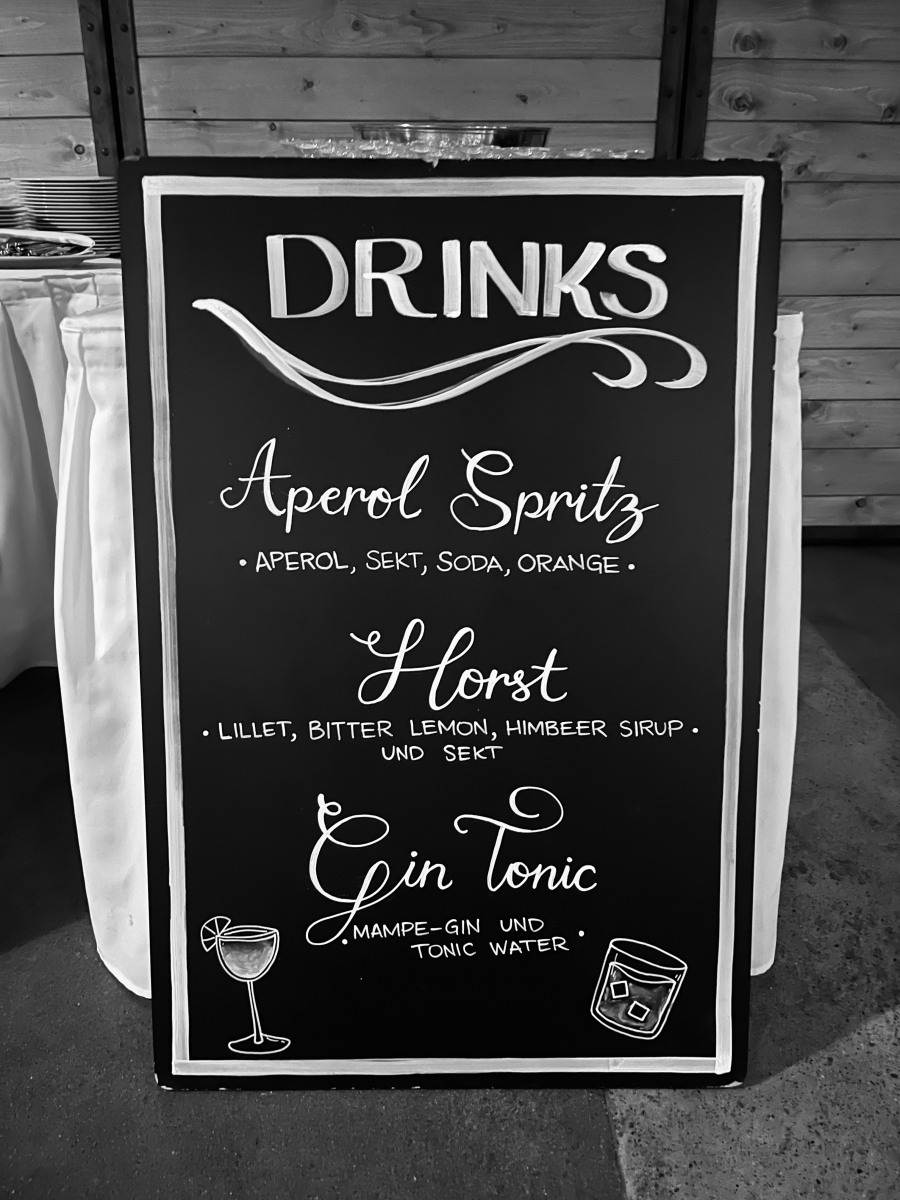 DRINKS
Aperol Spritz
• APEROL, SEKT, SODA, ORANGE •
Horst
• LILLET, BITTER LEMON, HIMBEER SIRUP •
UND SEKT
Gin Tonic
• MAMPE-GIN UND •
TONIC WATER